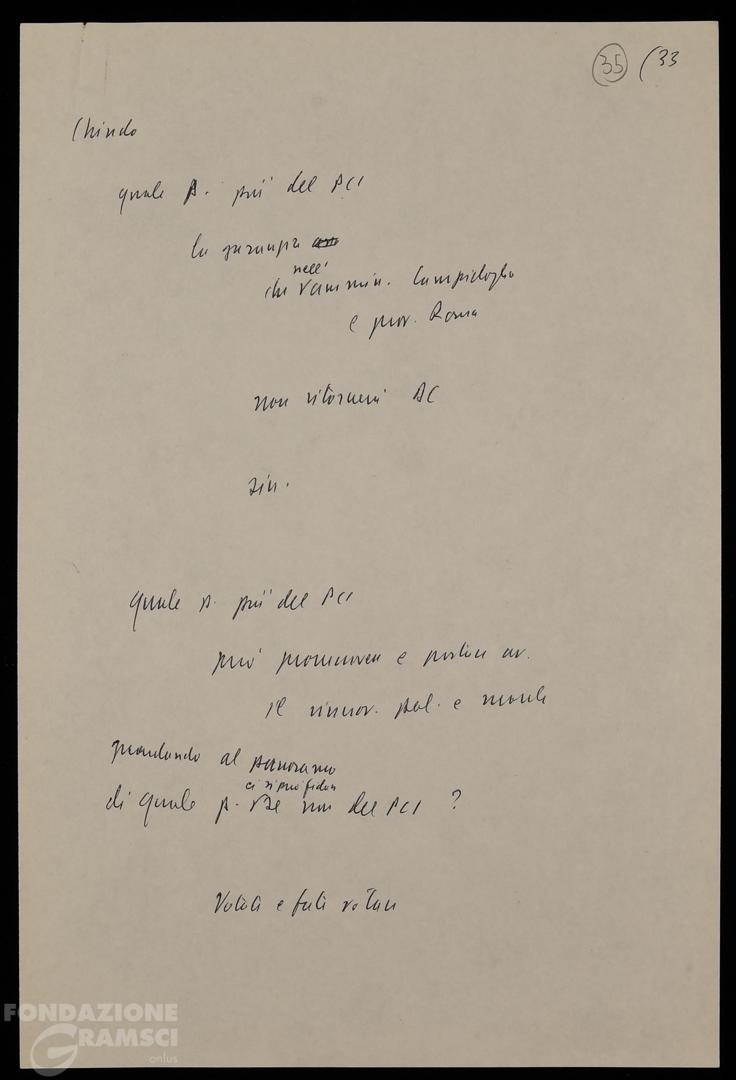 35 (33
Chiudo
quale p. più del PCI
la garanzia
nell'
che l'ammin. Campidoglio
e prov. Roma
non ritornerà DC
sin.
quale p. più del PCI
può promuovere e portare av.
il rinnov. pol. e morale
guardando al panorama
ci si può fidare
di quale p. se non del PCI ?
Votate e fate votare
FONDAZIONE
GRAMSCI
onlus